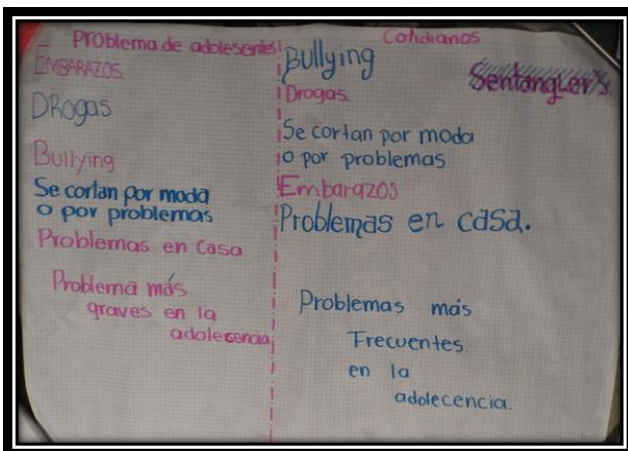 Problema de adolesentes
EMBARAZOS
DRogas
Bullying
Se cortan por moda
o por problemas
Problemas en Casa
Problema más
graves en la
adolecencia
Cotidianos
Bullying
Sentangler's
Drogas
Se cortan por moda
o por problemas
Embarazos
Problemas en casa.
Problemas más
Frecuentes.
en la
adolecencia.